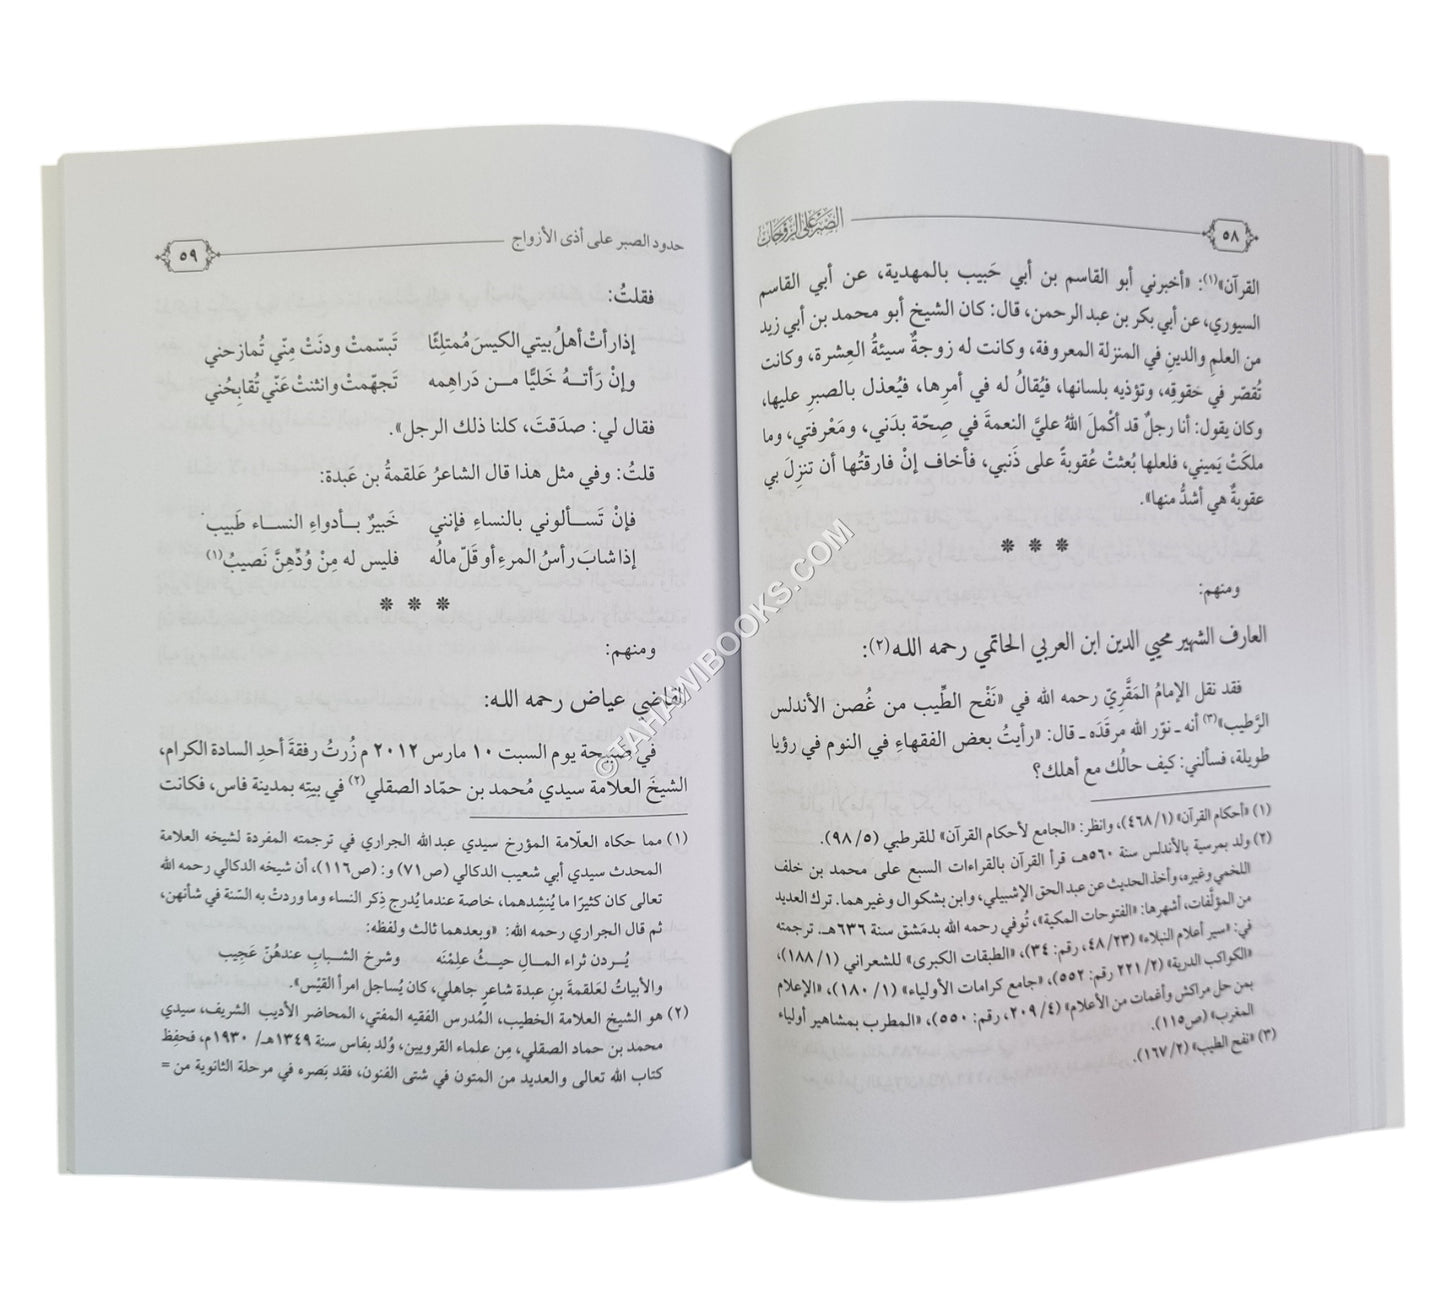 ٥٨
الصبر على الزوجات
القرآن»(١): «أخبرني أبو القاسم بن أبي حَبيب بالمهدية، عن أبي القاسم
السيوري، عن أبي بكر بن عبد الرحمن، قال: كان الشيخ أبو محمد بن أبي زيد
من العلمِ والدينِ في المنزلة المعروفة، وكانت له زوجةٌ سيئةُ العِشرة، وكانت
تُقصّر في حقوقِه، وتؤذيه بلسانها، فيُقالُ له في أمرِها، فيُعذل بالصبرِ عليها،
وكان يقول: أنا رجلٌ قد أكْملَ اللهُ عليَّ النعمةَ في صِحّة بدَني، ومَعْرفتي، وما
ملكَتْ يَميني، فلعلها بُعثتْ عُقوبةً على ذَنبي، فأخاف إنْ فارقتُها أن تنزِلَ بي
عقوبةٌ هي أشدُّ منها».
* * *
ومنهم:
العارف الشهير محيي الدين ابن العربي الحاتمي رحمه الله(٢):
فقد نقل الإمامُ المَقَّريّ رحمه الله في «نَفْح الطِّيب من غُصن الأندلس
الرَّطيب»(٣) أنه ـ نوّر الله مرقَدَه ـ قال: «رأيتُ بعض الفقهاءِ في النوم في رؤيا
طويلة، فسألني: كيف حالُك مع أهلك؟
(١) «أحكام القرآن» (١/ ٤٦٨)، وانظر: «الجامع لأحكام القرآن» للقرطبي (٥/ ٩٨).
(٢) ولد بمرسية بالأندلس سنة ٥٦٠هـ، قرأ القرآن بالقراءات السبع على محمد بن خلف
اللخمي وغيره، وأخذ الحديث عن عبد الحق الإشبيلي، وابن بشكوال وغيرهما. ترك العديد
من المؤلَّفات، أشهرها: «الفتوحات المكية»، تُوفي رحمه الله بدمَشق سنة ٦٣٦هـ. ترجمته
في: «سير أعلام النبلاء» (٢٣/ ٤٨، رقم: ٣٤)، «الطبقات الكبرى» للشعراني (١/ ١٨٨)،
«الكواكب الدرية» (٢/ ٢٢١ رقم: ٥٥٢)، «جامع كرامات الأولياء» (١/ ١٨٠)، «الإعلام
بمن حل مراكش وأغمات من الأعلام» (٤/ ٢٠٩، رقم: ٥٥٠)، «المطرب بمشاهير أولياء
المغرب» (ص١١٥).
(٣) «نفح الطيب» (٢/ ١٦٧).
حدود الصبر على أذى الأزواج
٥٩
فقلتُ:
إذا رأتْ أهلُ بيتي الكيسَ مُمتلِئًا تَبسّمتْ ودنَتْ مِنّي تُمازحني
وإنْ رَأتـهُ خَليًّا مـن دَراهِمه تَجهّمتْ وانثنتْ عَنّي تُقابِحُني
فقال لي: صدَقتَ، كلنا ذلك الرجل».
قلتُ: وفي مثل هذا قال الشاعرُ عَلقمةُ بن عَبدة:
فإنْ تَسـألوني بالنساءِ فإنني خَبيرٌ بـأدواءِ النساء طَبيب
إذا شابَ رأسُ المرءِ أو قَلّ مالُه فليس له مِنْ وُدِّهِنَّ نَصيبُ(١)
* * *
ومنهم:
القاضي عياض رحمه الله:
في صَبيحة يوم السبت ١٠ مارس ٢٠١٢م زُرتُ رفقةَ أحدِ السادة الكرام،
الشيخَ العلامة سيدي مُحمد بن حمّاد الصقلي(٢) في بيتِه بمدينة فاس، فكانت
(١) مما حكاه العلّامة المؤرخ سيدي عبد الله الجراري في ترجمته المفردة لشيخه العلامة
المحدث سيدي أبي شعيب الدكالي (ص٧١) و: (ص١١٦)، أن شيخه الدكالي رحمه الله
تعالى كان كثيرًا ما يُنشِدهما، خاصة عندما يُدرج ذِكر النساء وما وردتْ به السّنة في شأنهن،
ثم قال الجراري رحمه الله: «وبعدهما ثالث ولفظه:
يُـردن ثراء المـالِ حيـثُ علِمْنَه وشرخ الشبابِ عندهُنّ عَجيب
والأبياتُ لعَلقمةَ بنِ عبدة شاعرٍ جاهلي، كان يُساجل امرأ القيْس».
(٢) هو الشيخ العلامة الخطيب، المُدرس الفقيه المفتي، المحاضر الأديب الشريف، سيدي
محمد بن حماد الصقلي، مِن علماء القرويين، وُلد بفاس سنة ١٣٤٩هـ/ ١٩٣٠م، فحفِظ
كتاب الله تعالى والعديد من المتون في شتى الفنون، فقد بَصره في مرحلة الثانوية من =
©TAHAWIBOOKS.COM